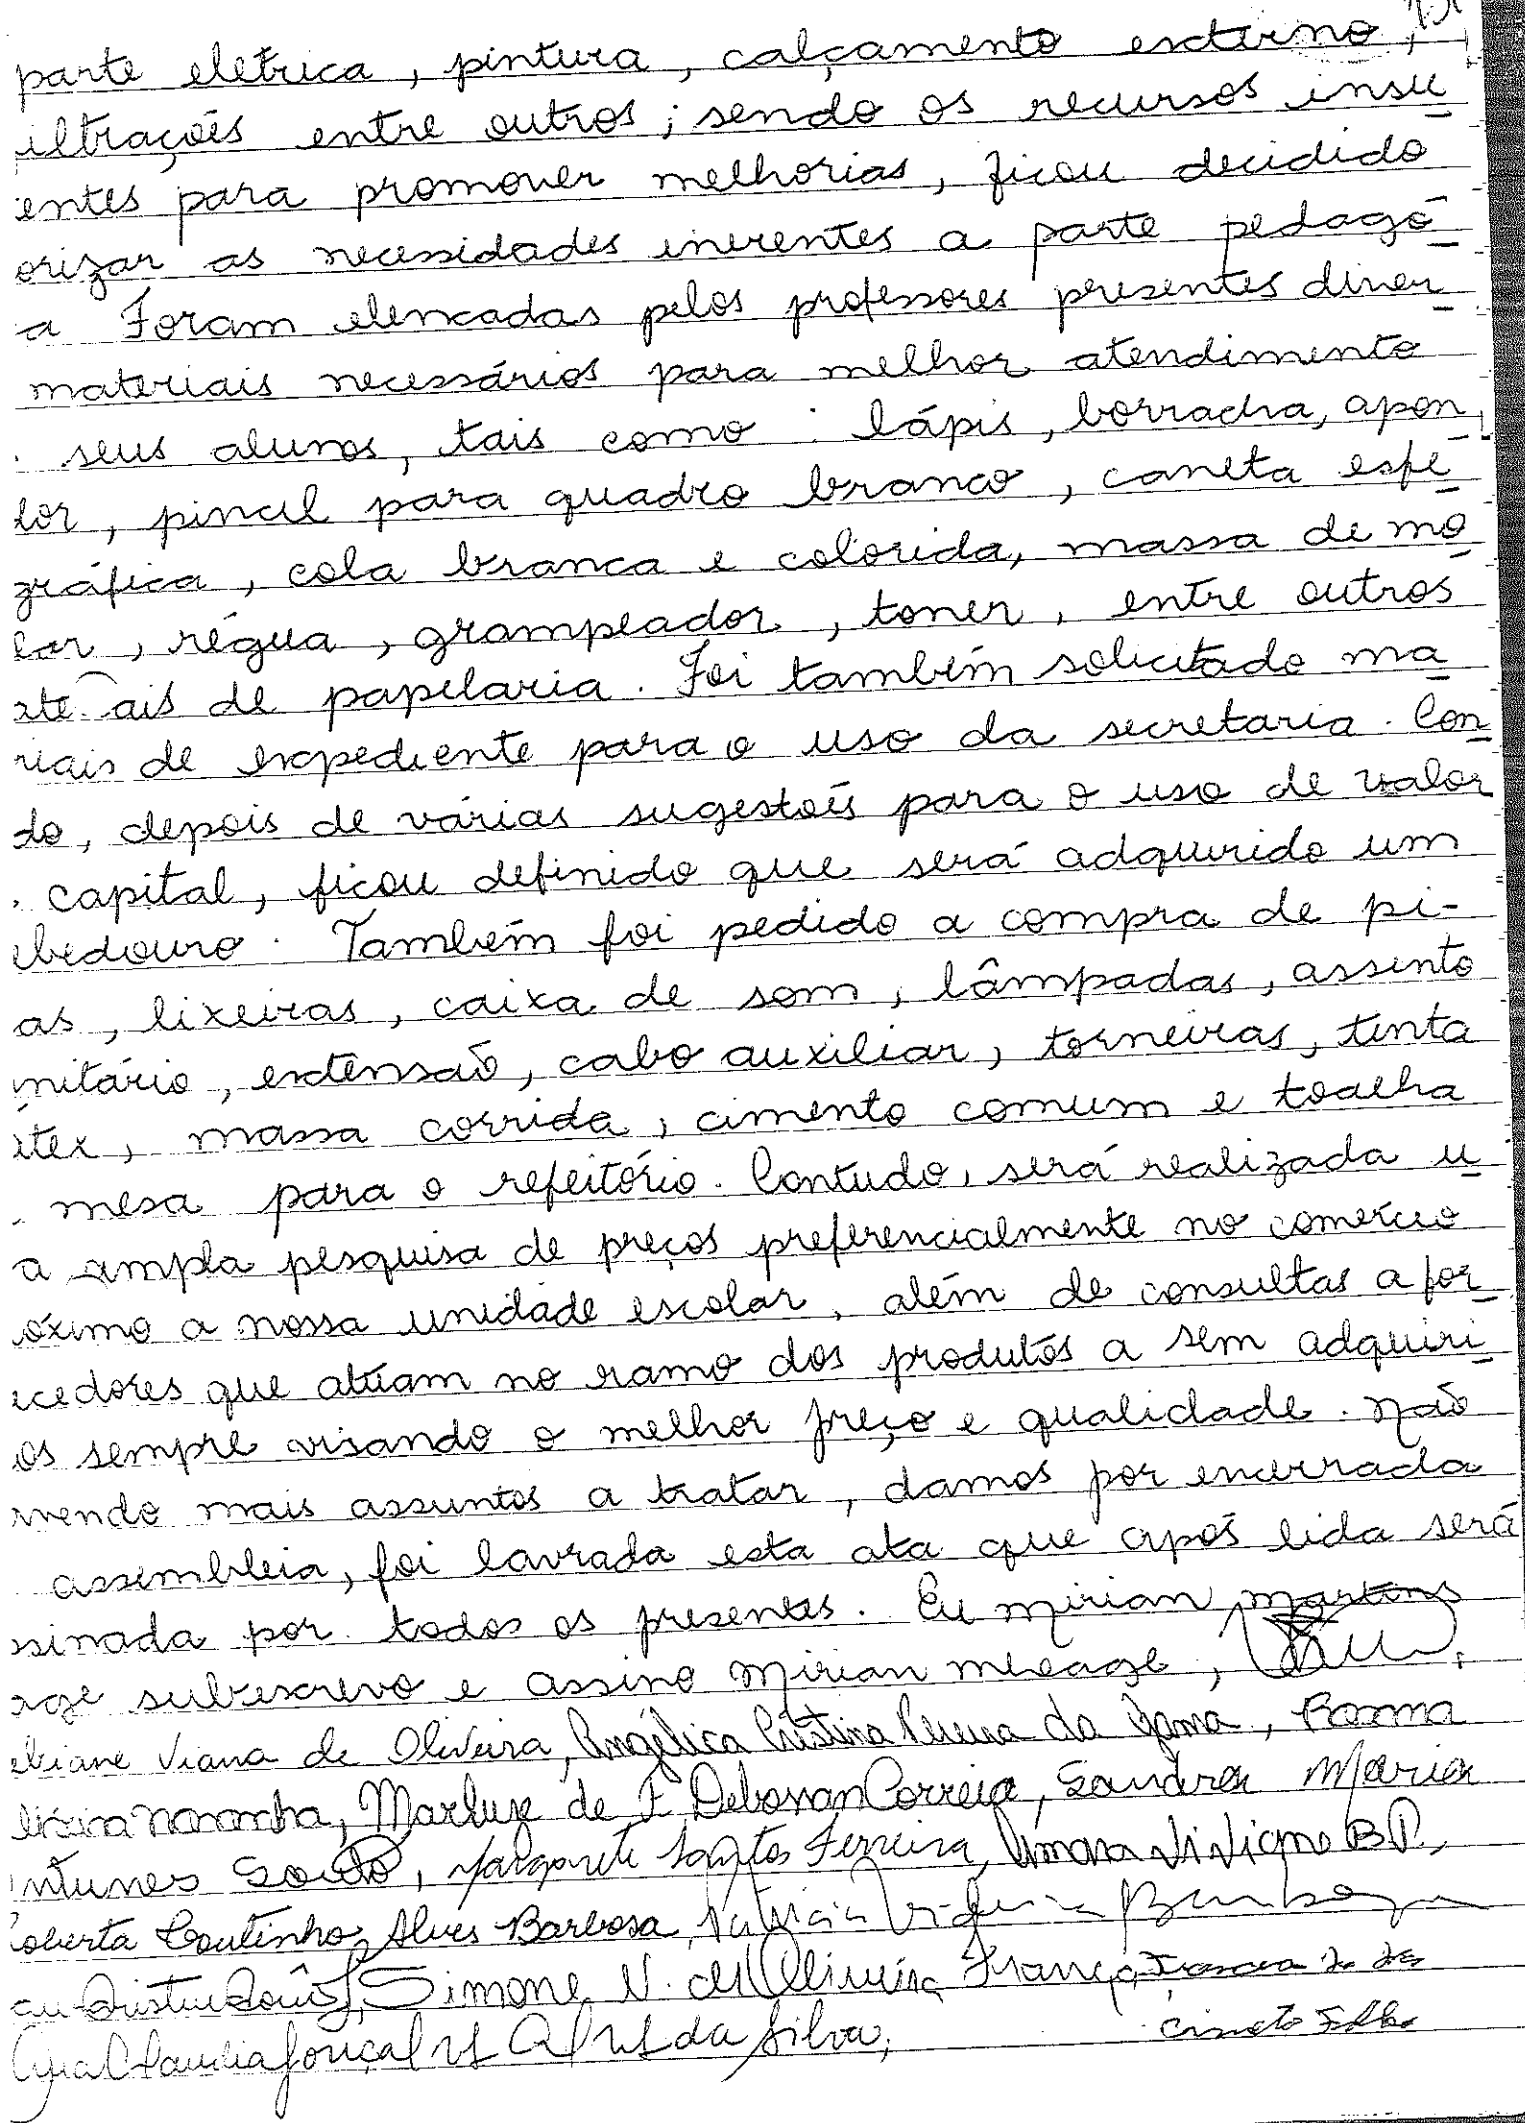 parte eletrica, pintura, calçamento externo,
iltrações entre outros; sendo os recursos insu
entes para promover melhorias, ficou decidido
orizar as necessidades inerentes a parte pedagó
a Foram elencadas pelos professores presentes diver
materiais necessários para melhor atendimento
seus alunos, tais como: lápis, borracha, apon
dor, pincel para quadro branco, caneta esfe
gráfica, cola branca e colorida, massa de mo
lar, régua, grampeador, toner, entre outros
ais de papelaria. Foi também solicitado ma
riais de expediente para o uso da secretaria. Con
do, depois de várias sugestões para o uso de valor
capital, ficou definido que será adquirido um
ebedouro. Também foi pedido a compra de pi-
as, lixeiras, caixa de som, lâmpadas, assento
nitário, extensão, cabo auxiliar, torneiras, tinta
átex, massa corrida, cimento comum e toalha
mesa para o refeitório. Contudo, será realizada u
a ampla pesquisa de preços preferencialmente no comércio
óximo a nossa unidade escolar, além de consultas a for
ecedores que atuam no ramo dos produtos a sem adquiri
os sempre visando o melhor preço e qualidade. Não
vendo mais assuntos a tratar, damos por encerrada
assembleia, foi lavrada esta ata que após lida será
ssinada por todos os presentes. Eu Mirian Martins
age subescrevo e assino Mirian Meage,
ebiane Viana de Oliveira, Angélica Cristina Pereira da Gama, Rosana
Marluse de F. Debossan Correia, Sandra Maria
ntunes Souto, Margarete Santos Ferreira, Viviane B P,
oberta Coutinho Alves Barbosa, Patrícia
Simone N. de Oliveira França,
Ana Claudia Gonçalves Alves da Silva,